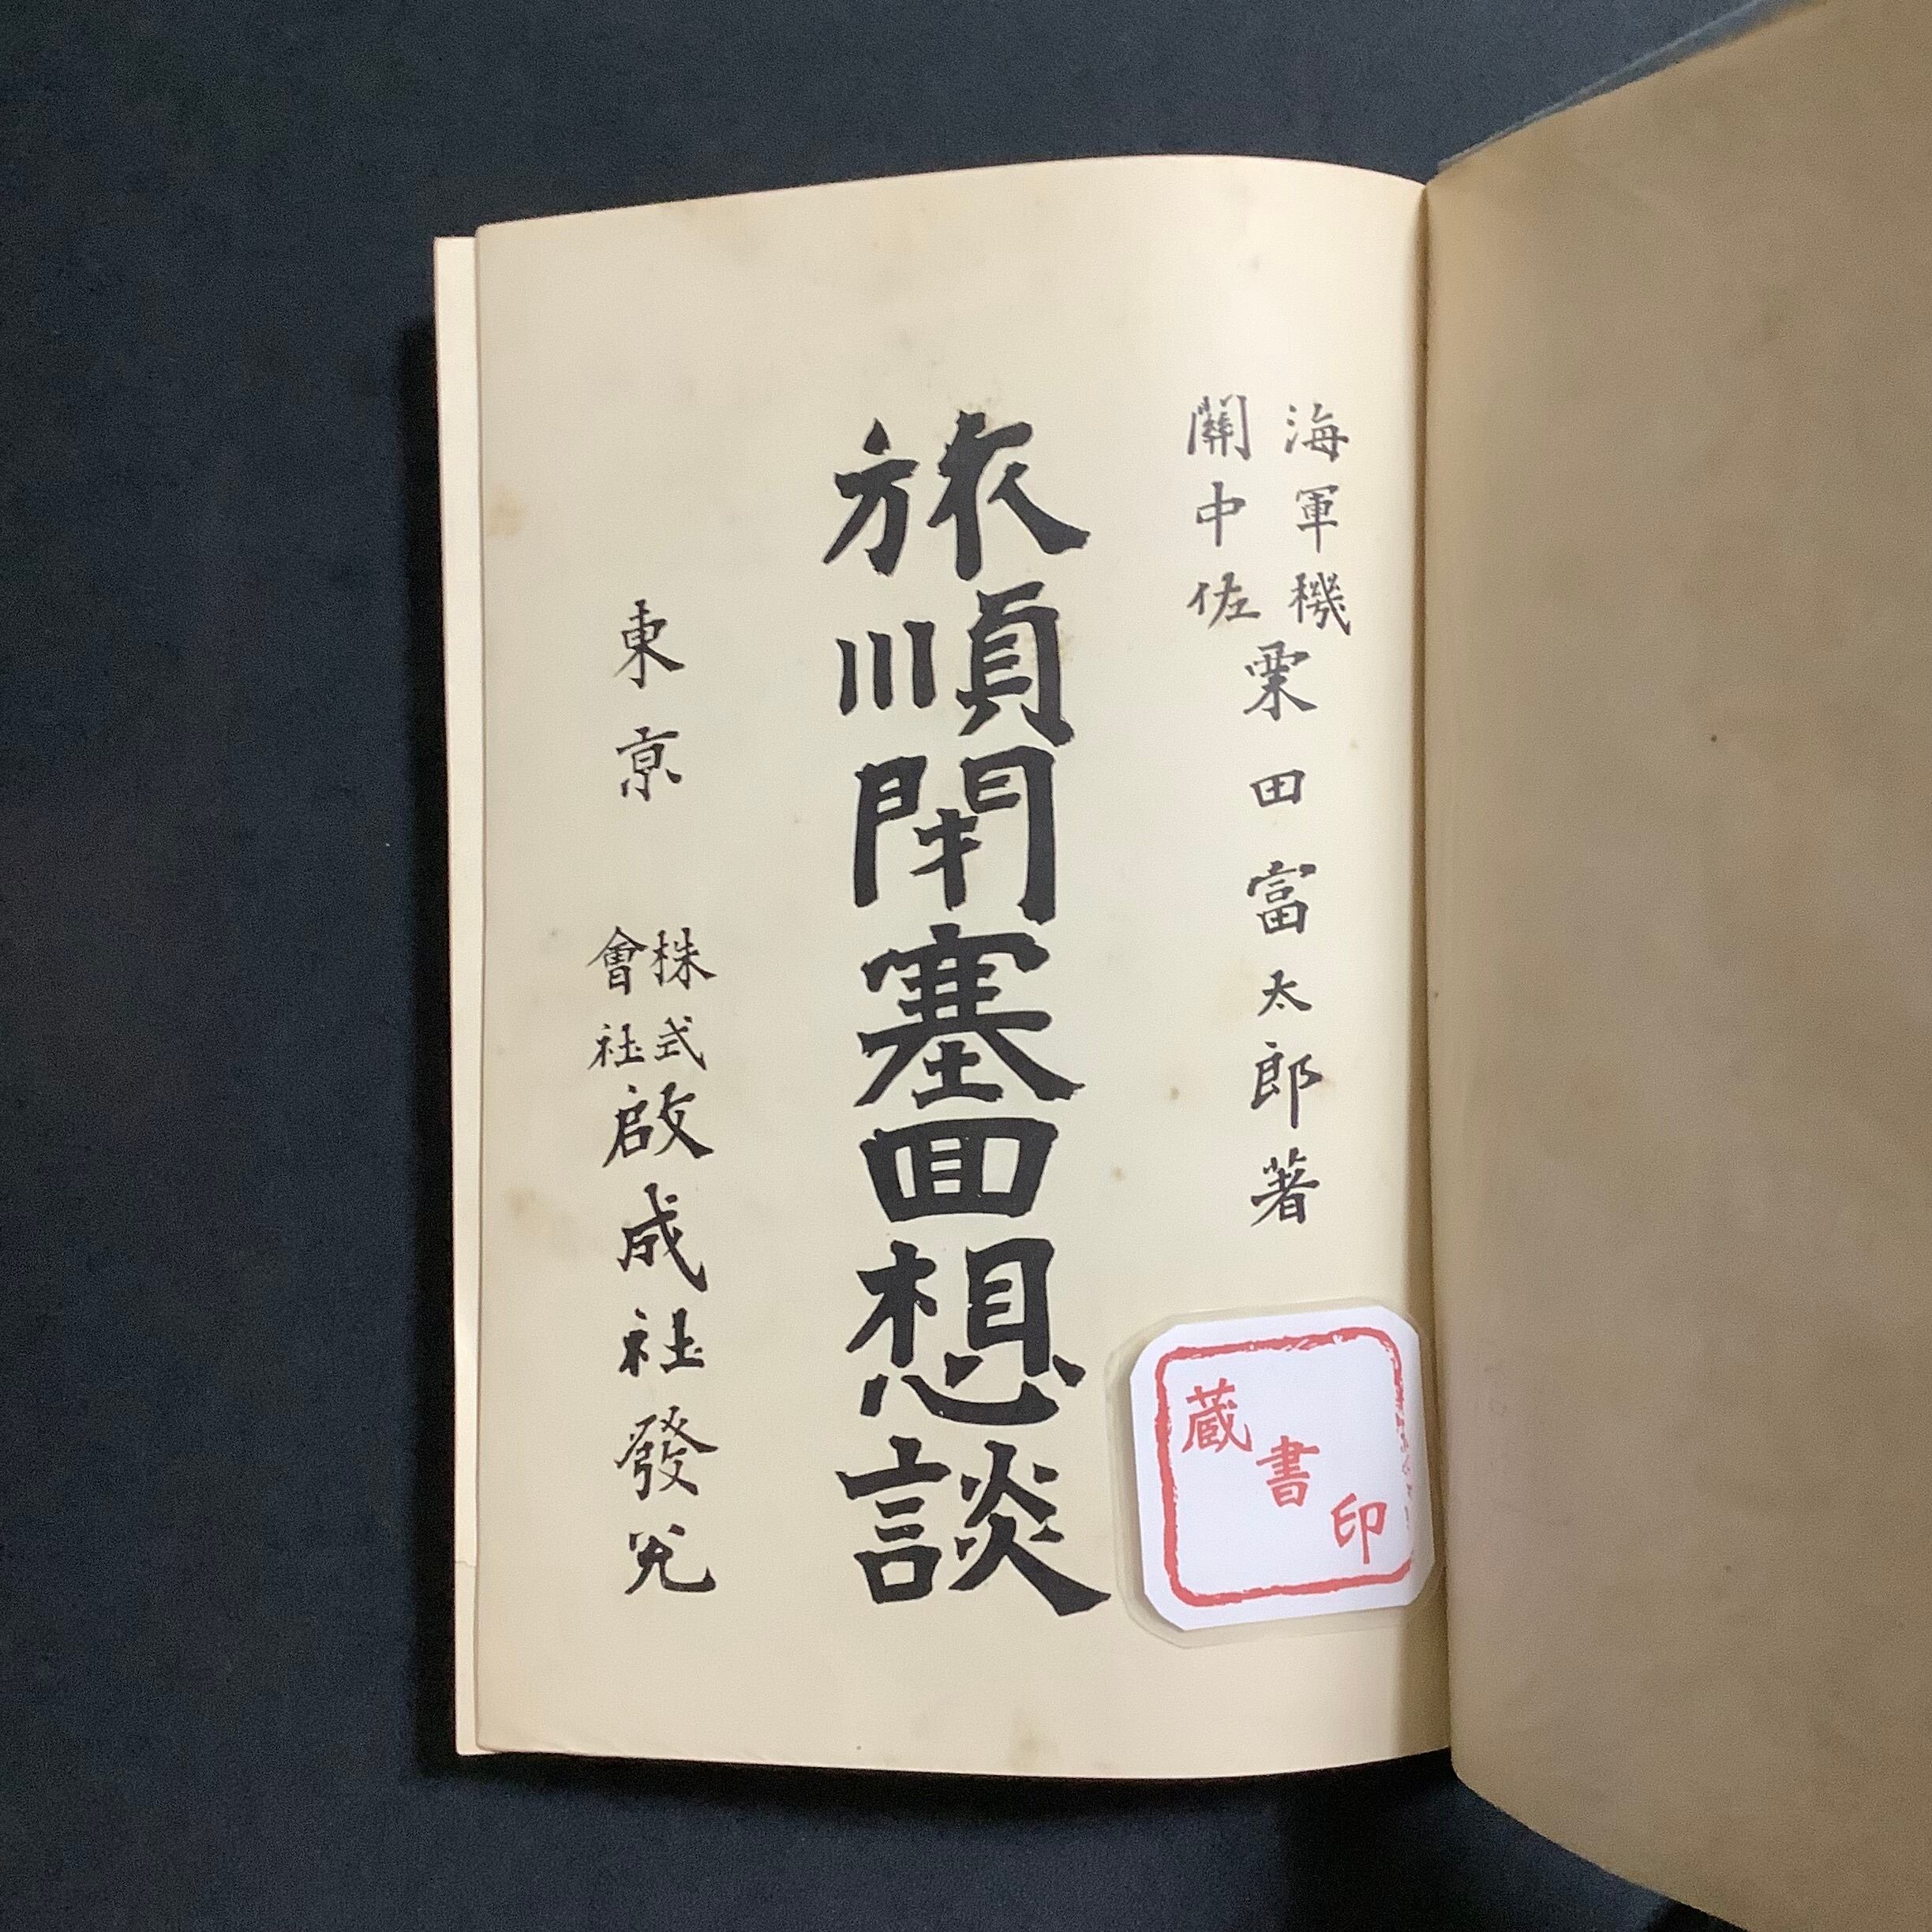 海軍機
關中佐
栗田富太郎著
旅順閉塞回想談
東京
株式
會社
啟成社發兌
蔵書印